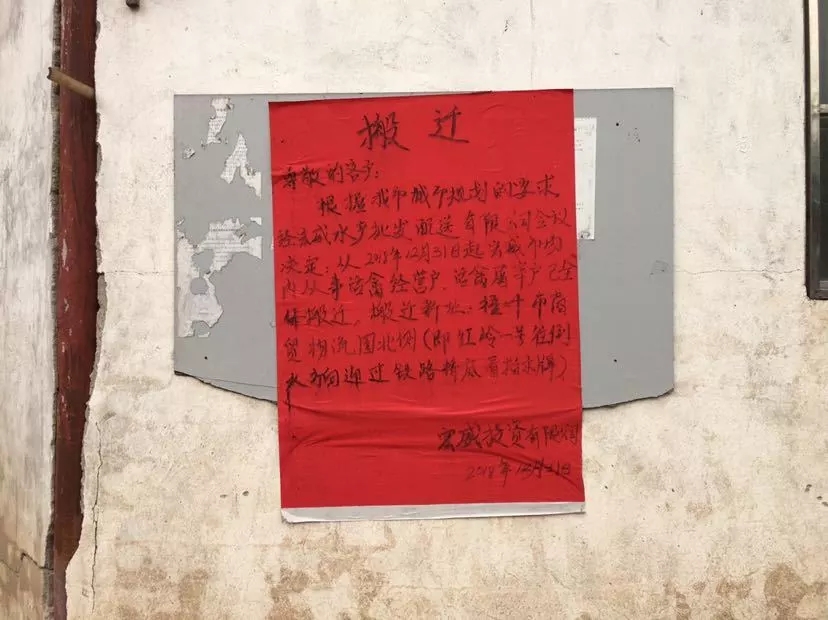 搬 迁
尊敬的客户:
根据我市城市规划的要求
经宏威水产批发配送有限公司会议
决定:从2018年12月31日起宏威市场
内从事活禽经营户,活禽屠宰户已全
体搬迁,搬迁新址:樟树市商
贸物流园北侧(即红岭一号往倒
水方向迎过铁路桥底看指示牌)
宏威投资有限公司
2018年12月21日